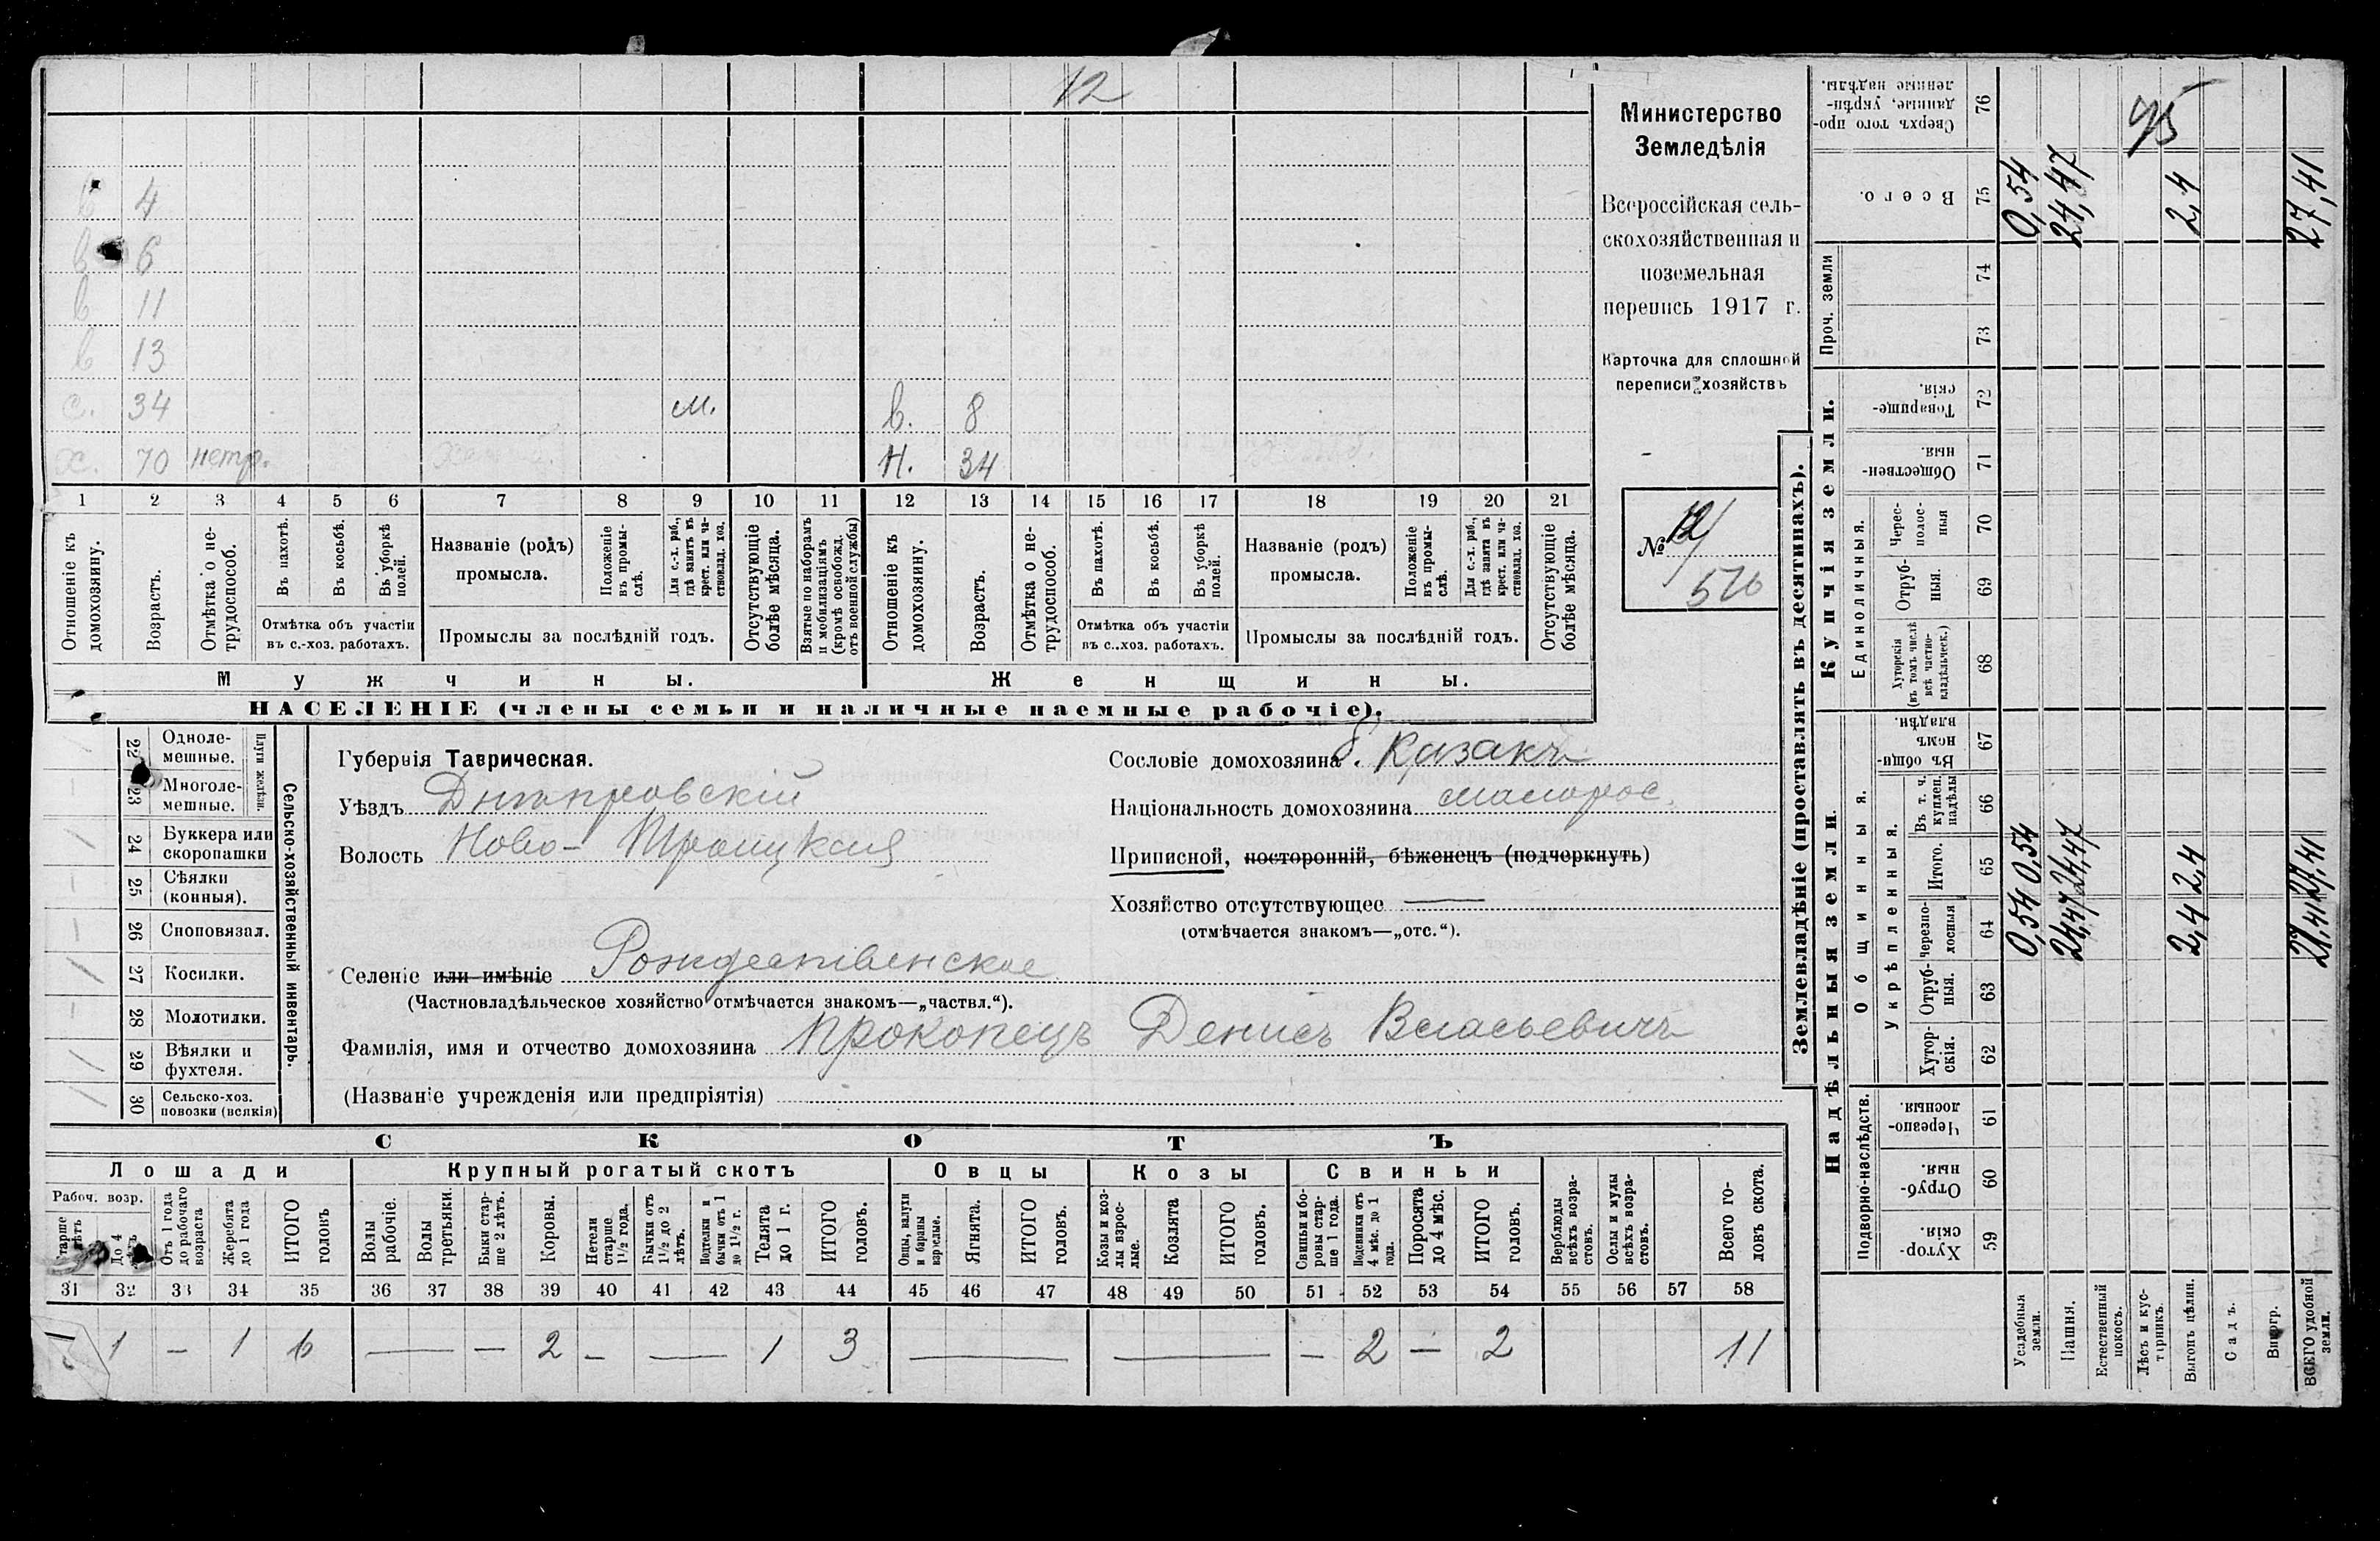 12
в 4
в 6
в 11
в 13
с. 34 м. в. 8
х. 70 нетр. Н. 34
1 2 3 4 5 6 7 8 9 10 11 12 13 14 15 16 17 18 19 20 21
Отношеніе къ домохозяину.
Возрастъ.
Отмѣтка о нетрудоспособ.
Въ пахотѣ.
Въ косьбѣ.
Въ уборкѣ полей.
Отмѣтка объ участіи
въ с.-хоз. работахъ.
Названіе (родъ)
промысла.
Положеніе въ промыслѣ.
Для с.-х. раб., гдѣ занятъ въ крест. или частновлад. хоз.
Промыслы за послѣдній годъ.
Отсутствующіе болѣе мѣсяца.
Взятые по наборамъ и мобилизаціямъ (кромѣ освобожд. отъ военной службы)
Отношеніе къ домохозяину.
Возрастъ.
Отмѣтка о нетрудоспособ.
Въ пахотѣ.
Въ косьбѣ.
Въ уборкѣ полей.
Отмѣтка объ участіи
въ с..хоз. работахъ.
Названіе (родъ)
промысла.
Положеніе въ промыслѣ.
Для с.-х. раб., гдѣ занята въ крест. или частновлад. хоз.
Промыслы за послѣдній годъ.
Отсутствующіе болѣе мѣсяца.
Мужчины.
Женщины.
НАСЕЛЕНІЕ (члены семьи и наличные наемные рабочіе).
Министерство
Земледѣлія
Всероссійская сель-
скохозяйственная и
поземельная
перепись 1917 г.
Карточка для сплошной
переписи хозяйствъ
№ 12
576
Сельско-хозяйственный инвентарь.
Плуги желѣзн.
22 Одноле-
мешные.
23 Многоле-
мешные.
24 Буккера или
скоропашки
25 Сѣялки
(конныя).
26 Сноповязал.
27 Косилки.
28 Молотилки.
29 Вѣялки и
фухтеля.
30 Сельско-хоз.
повозки (всякія)
Губернія Таврическая.
Уѣздъ Днѣпровскій
Волость Ново-Троицкая
Селеніе или имѣніе Рождественское
(Частновладѣльческое хозяйство отмѣчается знакомъ—„частвл.“).
Фамилія, имя и отчество домохозяина Прокопецъ Денисъ Власьевичъ
(Названіе учрежденія или предпріятія)
Сословіе домохозяина б. Казакъ
Національность домохозяина малорос.
Приписной, посторонній, бѣженецъ (подчеркнуть)
Хозяйство отсутствующее —
(отмѣчается знакомъ—„отс.“).
СКОТЪ
Лошади
Крупный рогатый скотъ
Овцы
Козы
Свиньи
Рабоч. возр.
Старше 4 лѣтъ
До 4 лѣтъ
Отъ 1 года до рабочаго возраста
Жеребята до 1 года
ИТОГО головъ
Волы рабочіе.
Волы третьяки.
Быки старше 2 лѣтъ.
Коровы.
Нетели старше 1½ года.
Бычки отъ 1½ до 2 лѣтъ.
Подтелки и бычки отъ 1 до 1½ г.
Телята до 1 г.
ИТОГО головъ.
Овцы, валухи и бараны взрослые.
Ягнята.
ИТОГО головъ.
Козы и козлы взрослые.
Козлята
ИТОГО головъ.
Свиньи и боровы старше 1 года.
Подсвинки отъ 4 мѣс. до 1 года.
Поросята до 4 мѣс.
ИТОГО головъ.
Верблюды всѣхъ возрастовъ.
Ослы и мулы всѣхъ возрастовъ.
Всего головъ скота.
31 32 33 34 35 36 37 38 39 40 41 42 43 44 45 46 47 48 49 50 51 52 53 54 55 56 57 58
1 — 1 6 — — 2 — — 1 3 — — — 2 — 2 11
Землевладѣніе (проставлять въ десятинахъ).
Надѣльныя земли.
Купчія земли.
Проч. земли
Подворно-наслѣдств.
Общинныя.
Укрѣпленныя.
Единоличныя.
Хуторскія. 59
Отрубныя. 60
Черезполосныя. 61
Хуторскія. 62
Отрубныя. 63
Черезполосныя 64
Итого. 65
Въ т. ч. куплен. надѣлы 66
Въ общинномъ владѣн. 67
Хуторскія (въ томъ числѣ всѣ частновладѣльческ.) 68
Отрубныя. 69
Чересполосныя 70
Общественныя. 71
Товарищескія. 72
73
74
Всего. 75
Сверхъ того проданные, укрѣпленные надѣлы. 76
Усадебныя земли. 0,54 0,54 0,54
Пашня. 24,47 24,47 24,47
Естественный покосъ.
Лѣсъ и кустарникъ.
Выгонъ цѣлин. 2,4 2,4 2,4
Садъ.
Виногр.
ВСЕГО удобной земли. 27,41 27,41 27,41